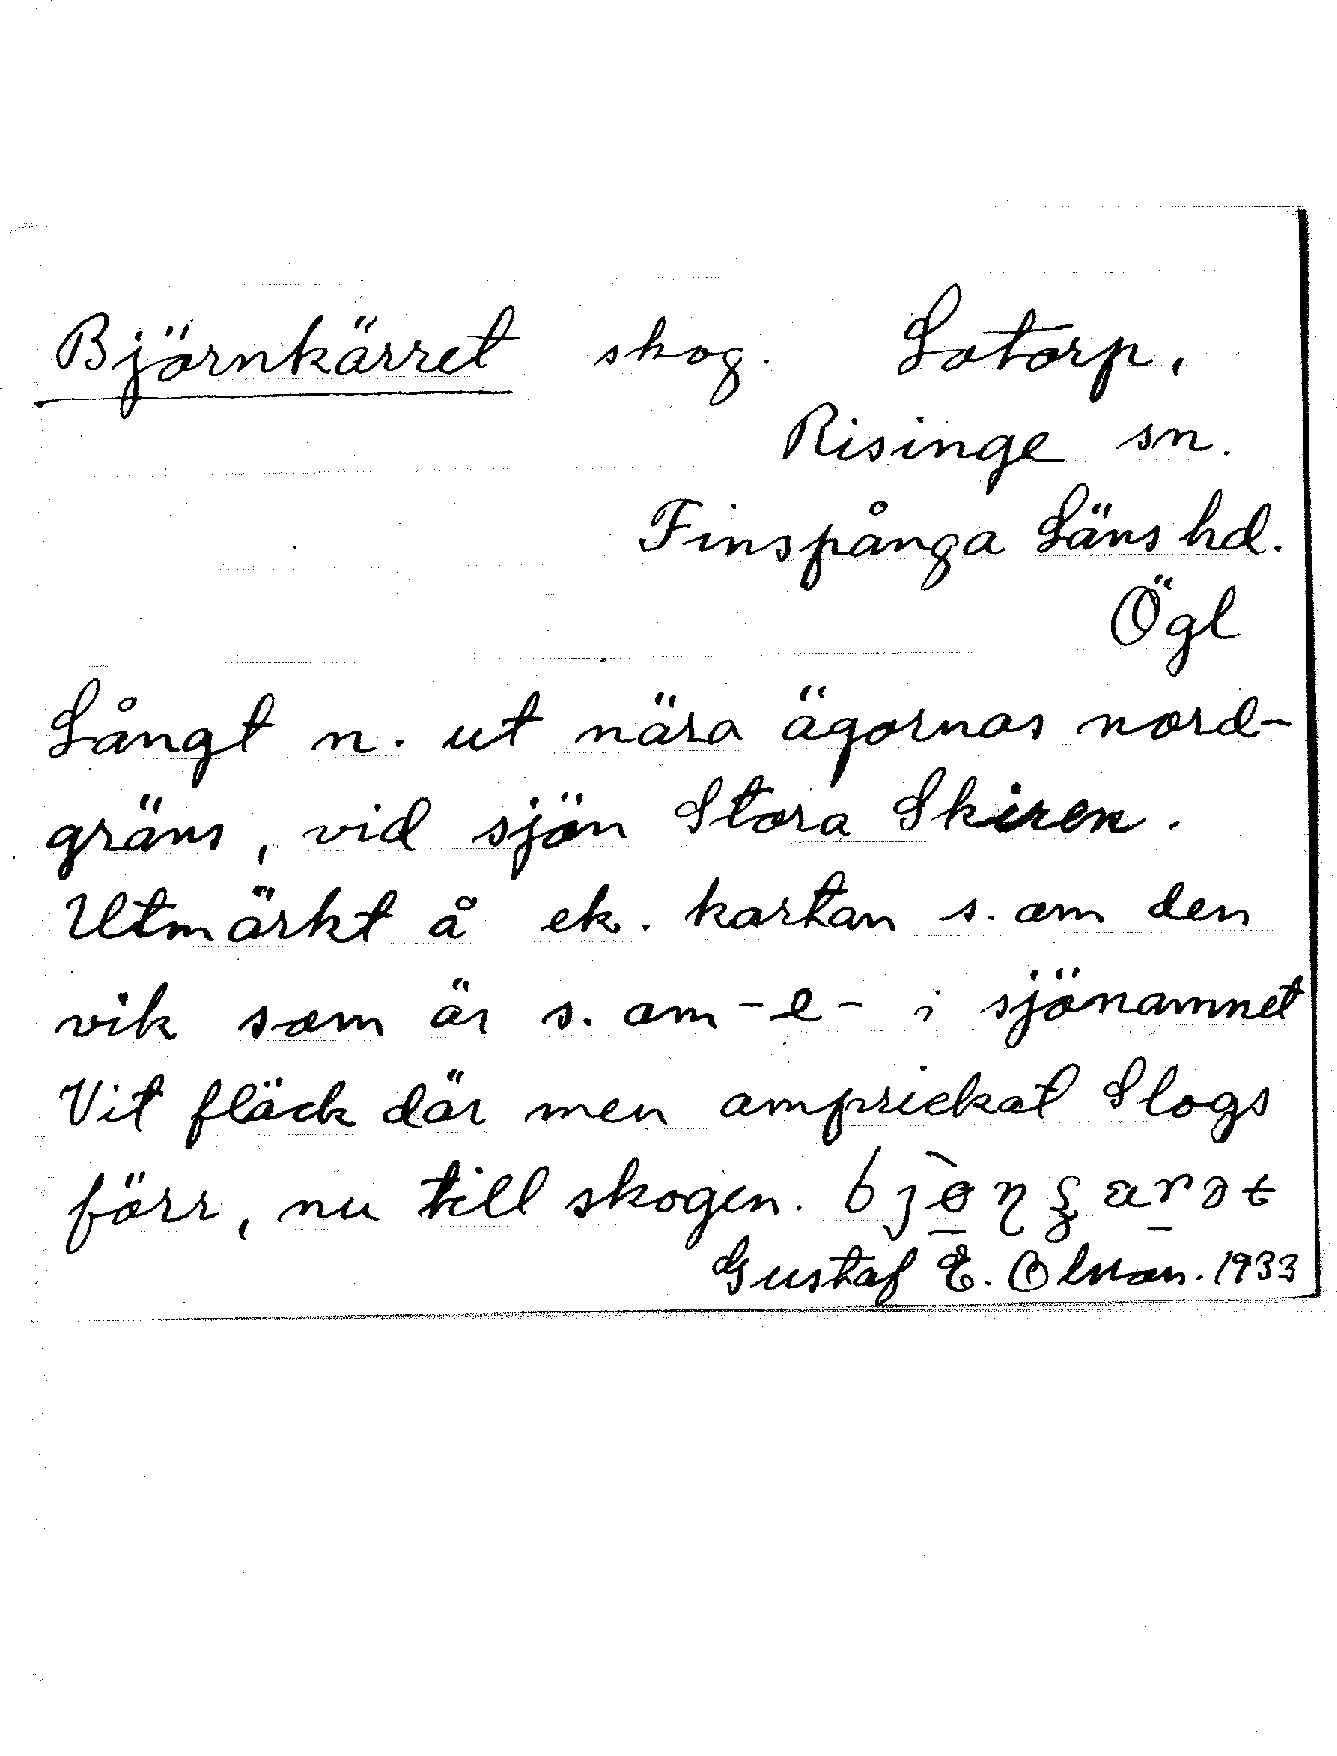 Björnkärret skog. Lotorp,
Risinge sn.
Finspånga Läns hd.
Ögl
Långt n. ut nära ägornas nord-
gräns, vid sjön Stora Skiren.
Utmärkt å ek. kartan s. om den
vik som är s. om -e- i sjönamnet
Vit fläck där men omprickat Slogs
förr, nu till skogen.
Gustaf E. Olsson. 1933